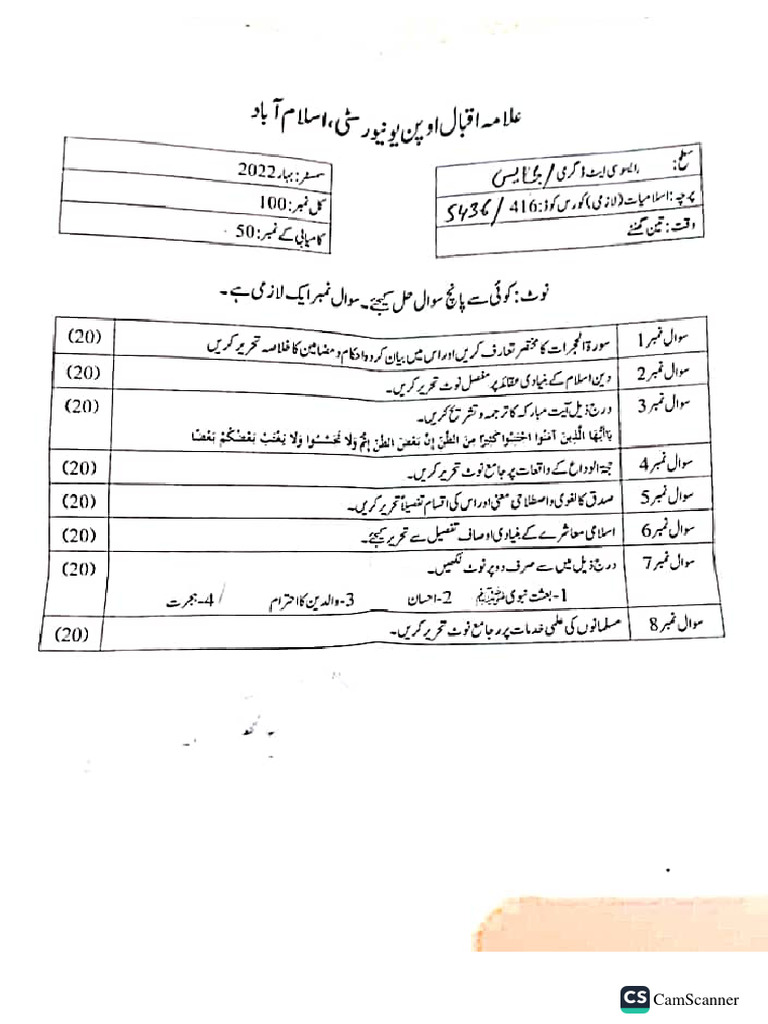 علامہ اقبال اوپن یونیورسٹی، اسلام آباد
سطح: ایسوسی ایٹ ڈگری / بی ایس
پرچہ: اسلامیات (لازمی) کورس کوڈ: 416 / 5436
وقت: تین گھنٹے
سمسٹر: بہار 2022
کل نمبر: 100
کامیابی کے نمبر: 50
نوٹ: کوئی سے پانچ سوال حل کیجئے۔ سوال نمبر ایک لازمی ہے۔
سوال نمبر 1 سورۃ الحجرات کا مختصر تعارف کریں اور اس میں بیان کردہ احکام و مضامین کا خلاصہ تحریر کریں (20)
سوال نمبر 2 دین اسلام کے بنیادی عقائد پر مفصل نوٹ تحریر کریں۔ (20)
سوال نمبر 3 درج ذیل آیت مبارکہ کا ترجمہ و تشریح کریں۔ (20)
يٰٓاَيُّهَا الَّذِينَ آمَنُوا اجْتَنِبُوا كَثِيرًا مِنَ الظَّنِّ إِنَّ بَعْضَ الظَّنِّ إِثْمٌ وَلَا تَجَسَّسُوا وَلَا يَغْتَبْ بَعْضُكُمْ بَعْضًا
سوال نمبر 4 حجۃ الوداع کے واقعات پر جامع نوٹ تحریر کریں۔ (20)
سوال نمبر 5 صدق کا لغوی و اصطلاحی معنی اور اس کی اقسام تفصیلاً تحریر کریں۔ (20)
سوال نمبر 6 اسلامی معاشرے کے بنیادی اوصاف تفصیل سے تحریر کیجئے۔ (20)
سوال نمبر 7 درج ذیل میں سے صرف دو پر نوٹ لکھیں۔ (20)
1- بعثت نبوی ﷺ 2- احسان 3- والدین کا احترام 4- ہجرت
سوال نمبر 8 مسلمانوں کی علمی خدمات پر جامع نوٹ تحریر کریں۔ (20)
CS CamScanner